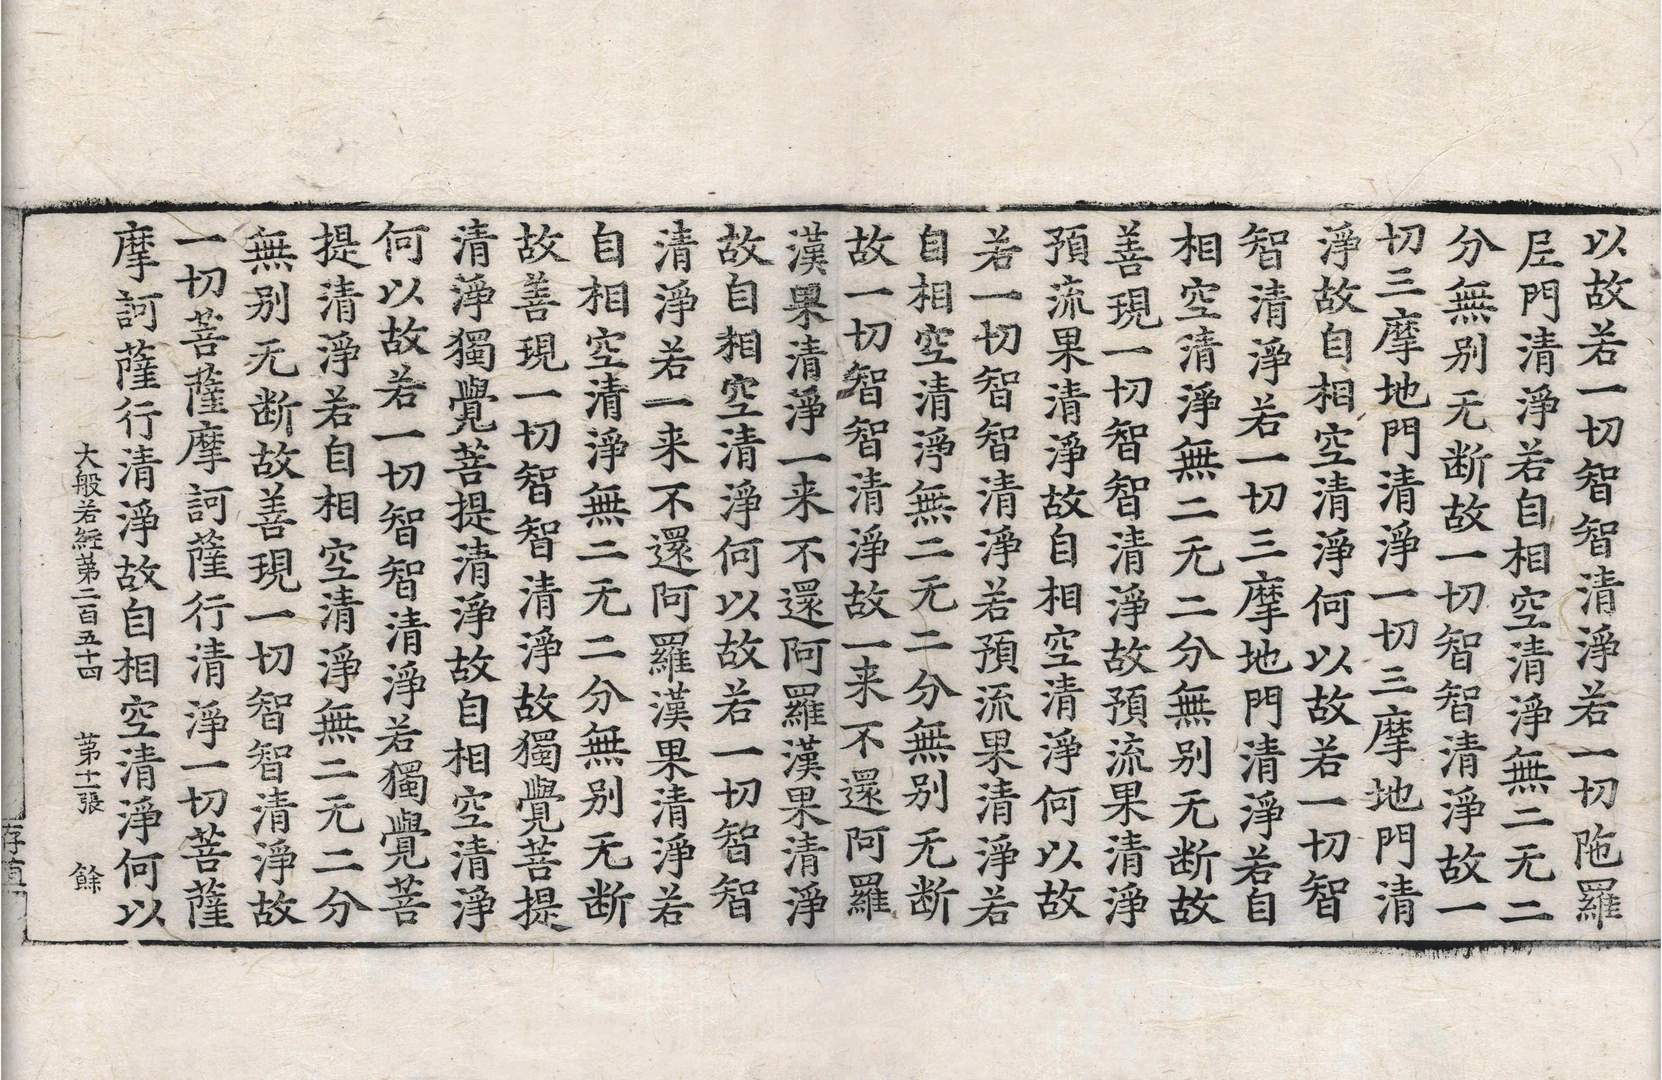 以故若一切智智清淨若一切陁羅
𡰱門清淨若自相空清淨無二无二
分無别无断故一切智智清淨故一
切三摩地門清淨一切三摩地門清
淨故自相空清淨何以故若一切智
智清淨若一切三摩地門清淨若自
相空清淨無二无二分無别无断故
善現一切智智清淨故預流果清淨
預流果清淨故自相空清淨何以故
若一切智智清淨若預流果清淨若
自相空清淨無二无二分無别无断
故一切智智清淨故一来不還阿羅
漢果清淨一来不還阿羅漢果清淨
故自相空清淨何以故若一切智智
清淨若一来不還阿羅漢果清淨若
自相空清淨無二无二分無别无断
故善現一切智智清淨故獨覺菩提
清淨獨覺菩提清淨故自相空清淨
何以故若一切智智清淨若獨覺菩
提清淨若自相空清淨無二无二分
無别无断故善現一切智智清淨故
一切菩薩摩訶薩行清淨一切菩薩
摩訶薩行清淨故自相空清淨何以
大般若經第二百五十四 第十一張 餘